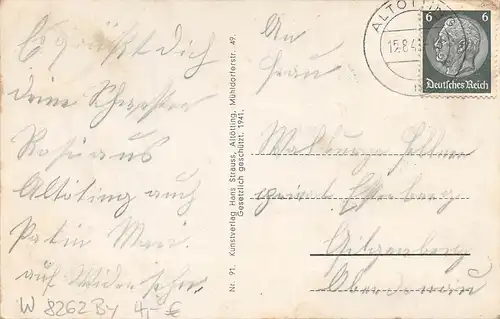 Es grüßt dich
deine Schwester
Rosi aus
Altötting auch
Patin Mari
auf Wiedersehn
W 8262 By 4,- €
Nr. 91. Kunstverlag Hans Strauss, Altötting, Mühldorferstr. 49.
Gesetzlich geschützt. 1941.
ALTÖTTING
15.8.4
6 6
Deutsches Reich
An
Frau
Walburga